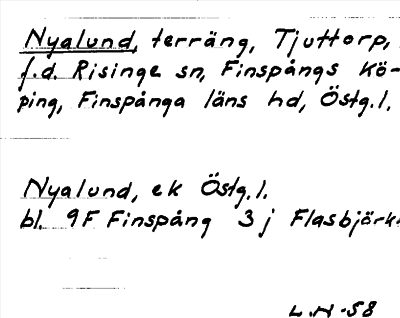 Nyalund, terräng, Tjuttorp,
f.d. Risinge sn, Finspångs Kö-
ping, Finspånga läns hd, Östg.l.
Nyalund, ek Östg.l.
bl. 9F Finspång 3j Flasbjörk
L.H-58